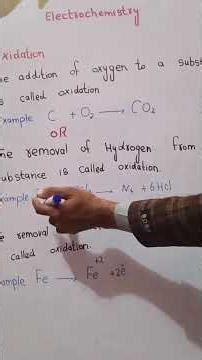 Electrochemistry
xidation
he addition of oxygen to a subst
s called oxidation
xample C + O₂ → CO₂
OR
he removal of Hydrogen from
ubstance is called oxidation.
xample → N₂ + 6HCl
e removal
called oxidation.
ample Fe → Fe⁺² + 2ē